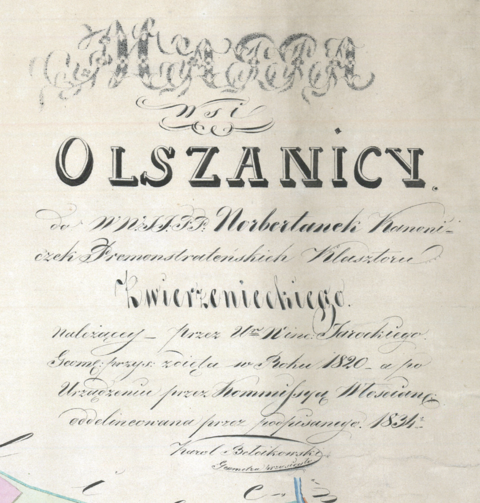 MAPPA
WSI
OLSZANICY.
do WW. JJ. PP. Norbertanek Kanoni-
czek Premonstrateńskich Klasztoru
Zwierzynieckiego.
należącey przez Winc Jarockiego
Geome: przys: zdięta w Roku 1820 a po
Urządzeniu przez Kommissyą Włościań:
oddelineowana przez podpisanego. 1834
Karol
Geometra